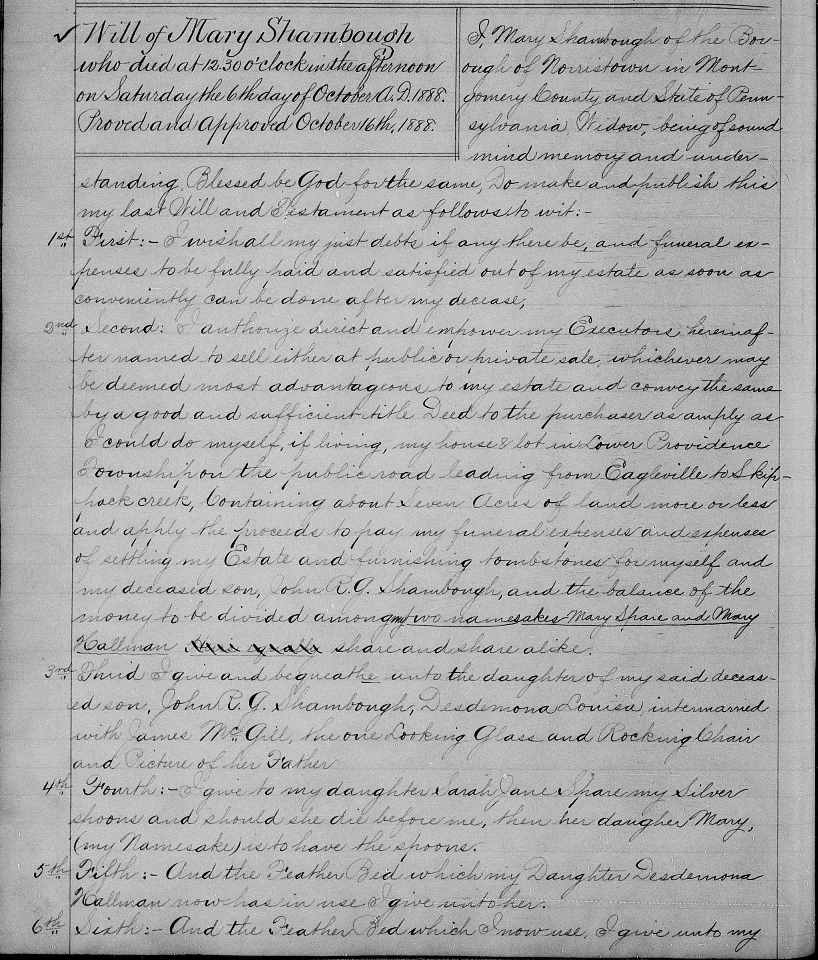 ✓ Will of Mary Shambough
who died at 12.30 o'clock in the afternoon
on Saturday the 6th day of October A.D. 1888.
Proved and Approved October 16th, 1888.
I, Mary Shambough of the Bor-
ough of Norristown in Mont-
gomery County and State of Penn-
sylvania, Widow, being of sound
mind memory and under-
standing, Blessed be God for the same, Do make and publish this
my last Will and Testament as follows to wit:-
1st First:- I wish all my just debts if any there be, and funeral ex-
penses to be fully paid and satisfied out of my estate as soon as
conveniently can be done after my decease,
2nd Second: I authorize direct and empower my Executors hereinaf-
ter named to sell either at public or private sale, whichever may
be deemed most advantageous to my estate and convey the same
by a good and sufficient title Deed to the purchaser as amply as
I could do myself, if living, my house & lot in Lower Providence
Township on the public road leading from Eagleville to Skip-
pack creek, Containing about Seven Acres of land more or less
and apply the proceeds to pay my funeral expenses and expenses
of settling my Estate and furnishing tombstones for myself and
my deceased son, John R. G. Shambough, and the balance of the
money to be divided among my two namesakes Mary Spare and Mary
Hallman share and share alike.
3rd Third I give and bequeathe unto the daughter of my said deceas-
ed son, John R. G. Shambough, Desdemona Louisa, intermarried
with James McGill, the one Looking Glass and Rocking Chair
and Picture of her Father
4th Fourth:- I give to my daughter Sarah Jane Spare my Silver
spoons and should she die before me, then her daugher Mary,
(my Namesake) is to have the spoons.
5th Fifth:- And the Feather Bed which my Daughter Desdemona
Hallman now has in use I give unto her.
6th Sixth:- And the Feather Bed which I now use, I give unto my